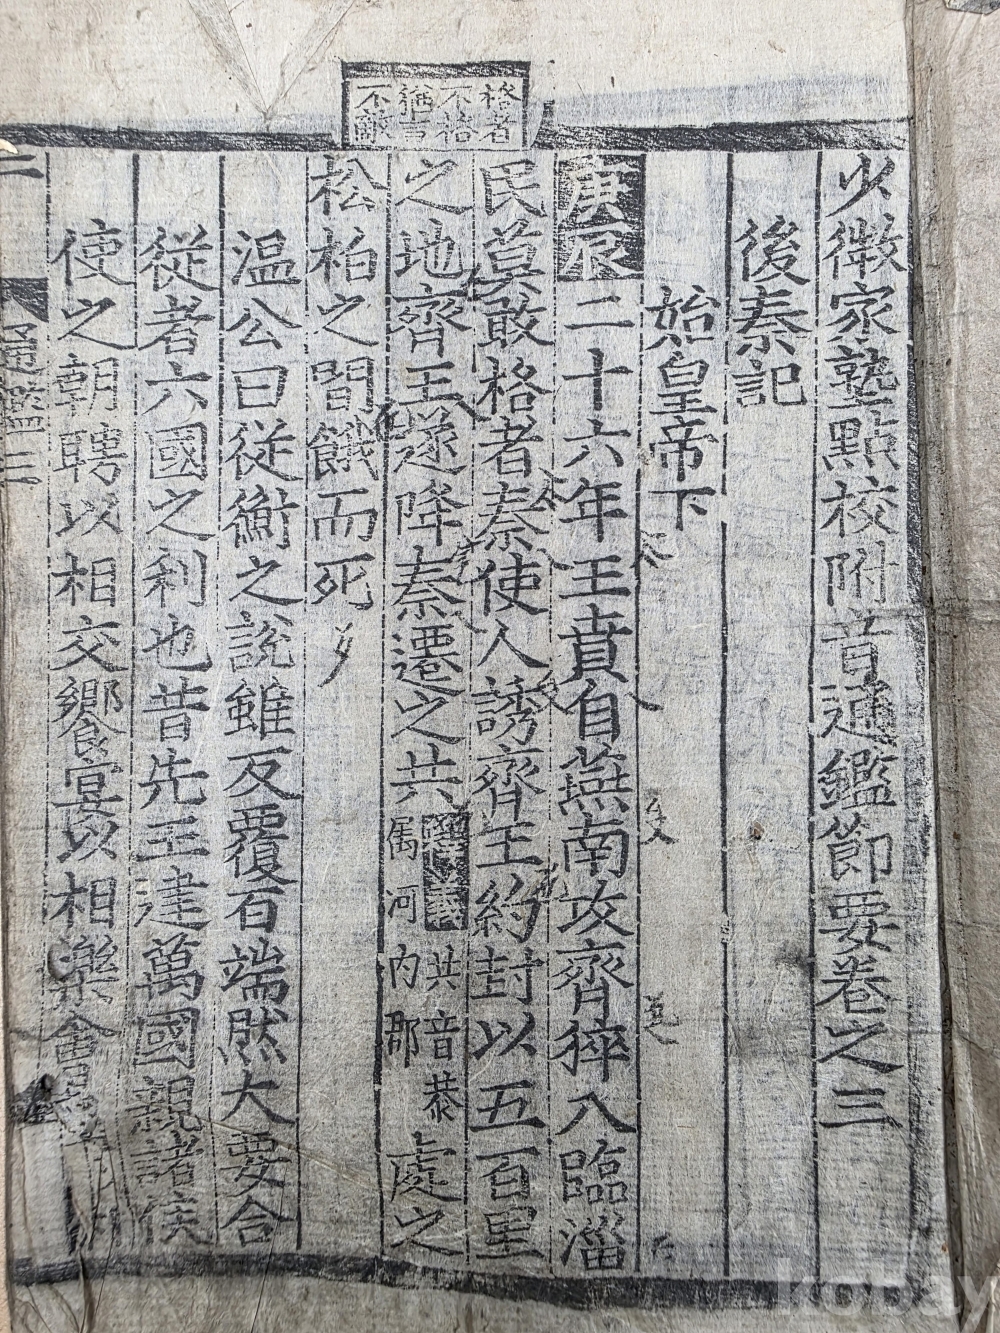 少微家塾點校附音通鑑節要卷之三
後秦記
始皇帝下
庚辰二十六年王賁自燕南攻齊猝入臨淄
民莫敢格者秦使人誘齊王約封以五百里
之地齊王遂降秦遷之共
釋義共音恭
属河内郡
處之
松柏之間餓而死
温公曰從衡之說雖反覆百端然大要合
從者六國之利也昔先王建萬國親諸侯
使之朝聘以相交饗宴以相樂會
格者
不格
猶言
不敵
通鑑三
kobay